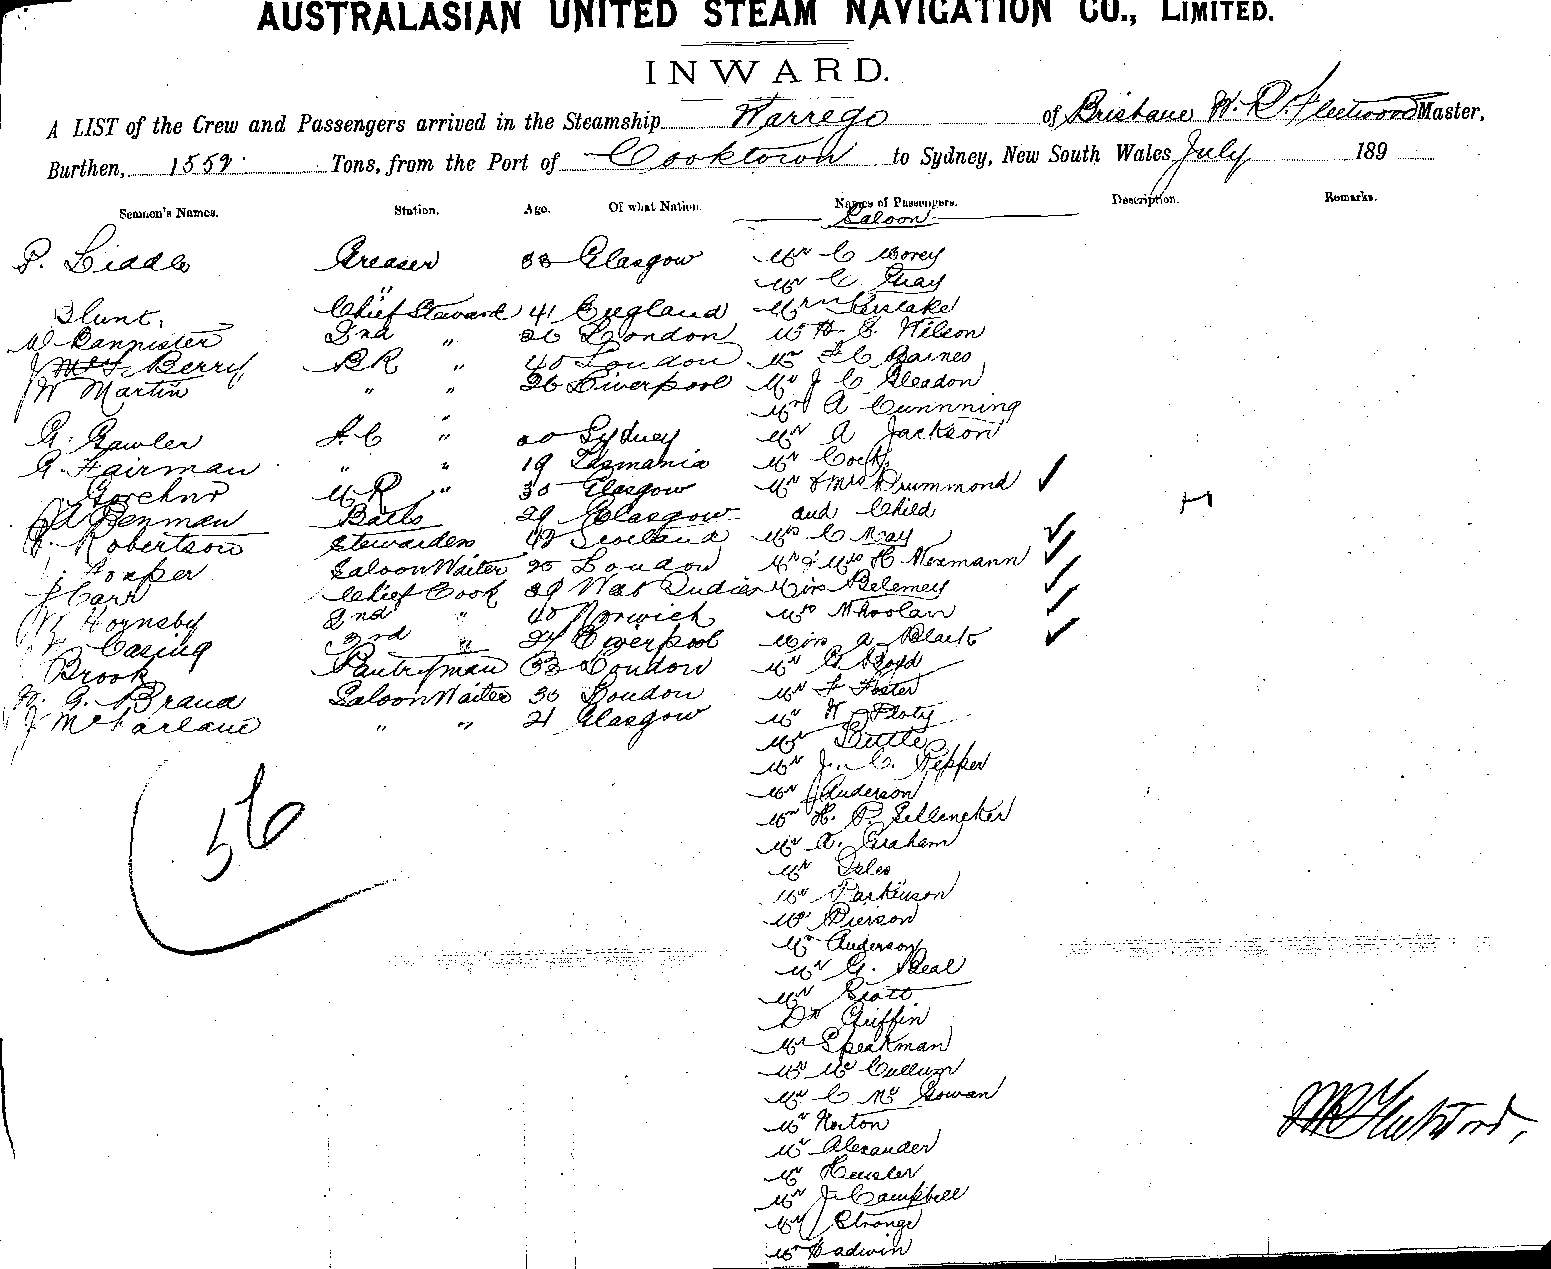 AUSTRALASIAN UNITED STEAM NAVIGATION CO., LIMITED.
INWARD.
A LIST of the Crew and Passengers arrived in the Steamship Warrego of Brisbane W. R. Fleetwood Master,
Burthen, 1559 Tons, from the Port of Cooktown to Sydney, New South Wales July 189
Seamen's Names. Station. Age. Of what Nation. Names of Passengers. Description. Remarks.
Saloon
P. Liddle Greaser 33 Glasgow Mr C Morey
Mr C Gray
Blunt Chief Steward 41 England Mrs Kerslake
Bannister 2nd " 26 London Mr H. C. Wilson
J Berry BR " 40 London Mr F C Baines
W Martin " " 26 Liverpool Mr J C Gleadon
Mr A Cunnning
G. Gawler F.C " 20 Sydney Mr A Jackson
G. Fairman " " 19 Tasmania Mr Cock
M R " 30 Glasgow Mr & Mrs Drummond
A Penman Baths 29 Glasgow and Child
Robertson Stewardess 42 Scotland Mrs C May
Saloon Waiter 20 London Mr & Mrs H Wexmann
J Carr Chief Cook 39 West Indies Miss
W Hornsby 2nd " 40 Norwich Mrs Whoolan
W Casing 3rd " 27 Liverpool Miss A. Black
Brook Pantryman 33 London Mr G Lloyd
G. Brand Saloon Waiter 30 London Mr F Foster
J McFarlane " " 21 Glasgow Mr W
Mr Little
Mr J. C. Pepper
Mr J Anderson
Mr H. P. Selleneker
Mr A. Graham
Mr Isles
Mr Parkinson
Mr Pierson
Mr Anderson
Mr G. Beal
Mr Scott
Dr Griffin
Mr Speakman
Mr McCullum
Mr C McGowan
Mr Norton
Mr Alexander
Mr Heusler
Mr J Campbell
Mr Strange
Mr Hadwin
56
W R Fleetwood